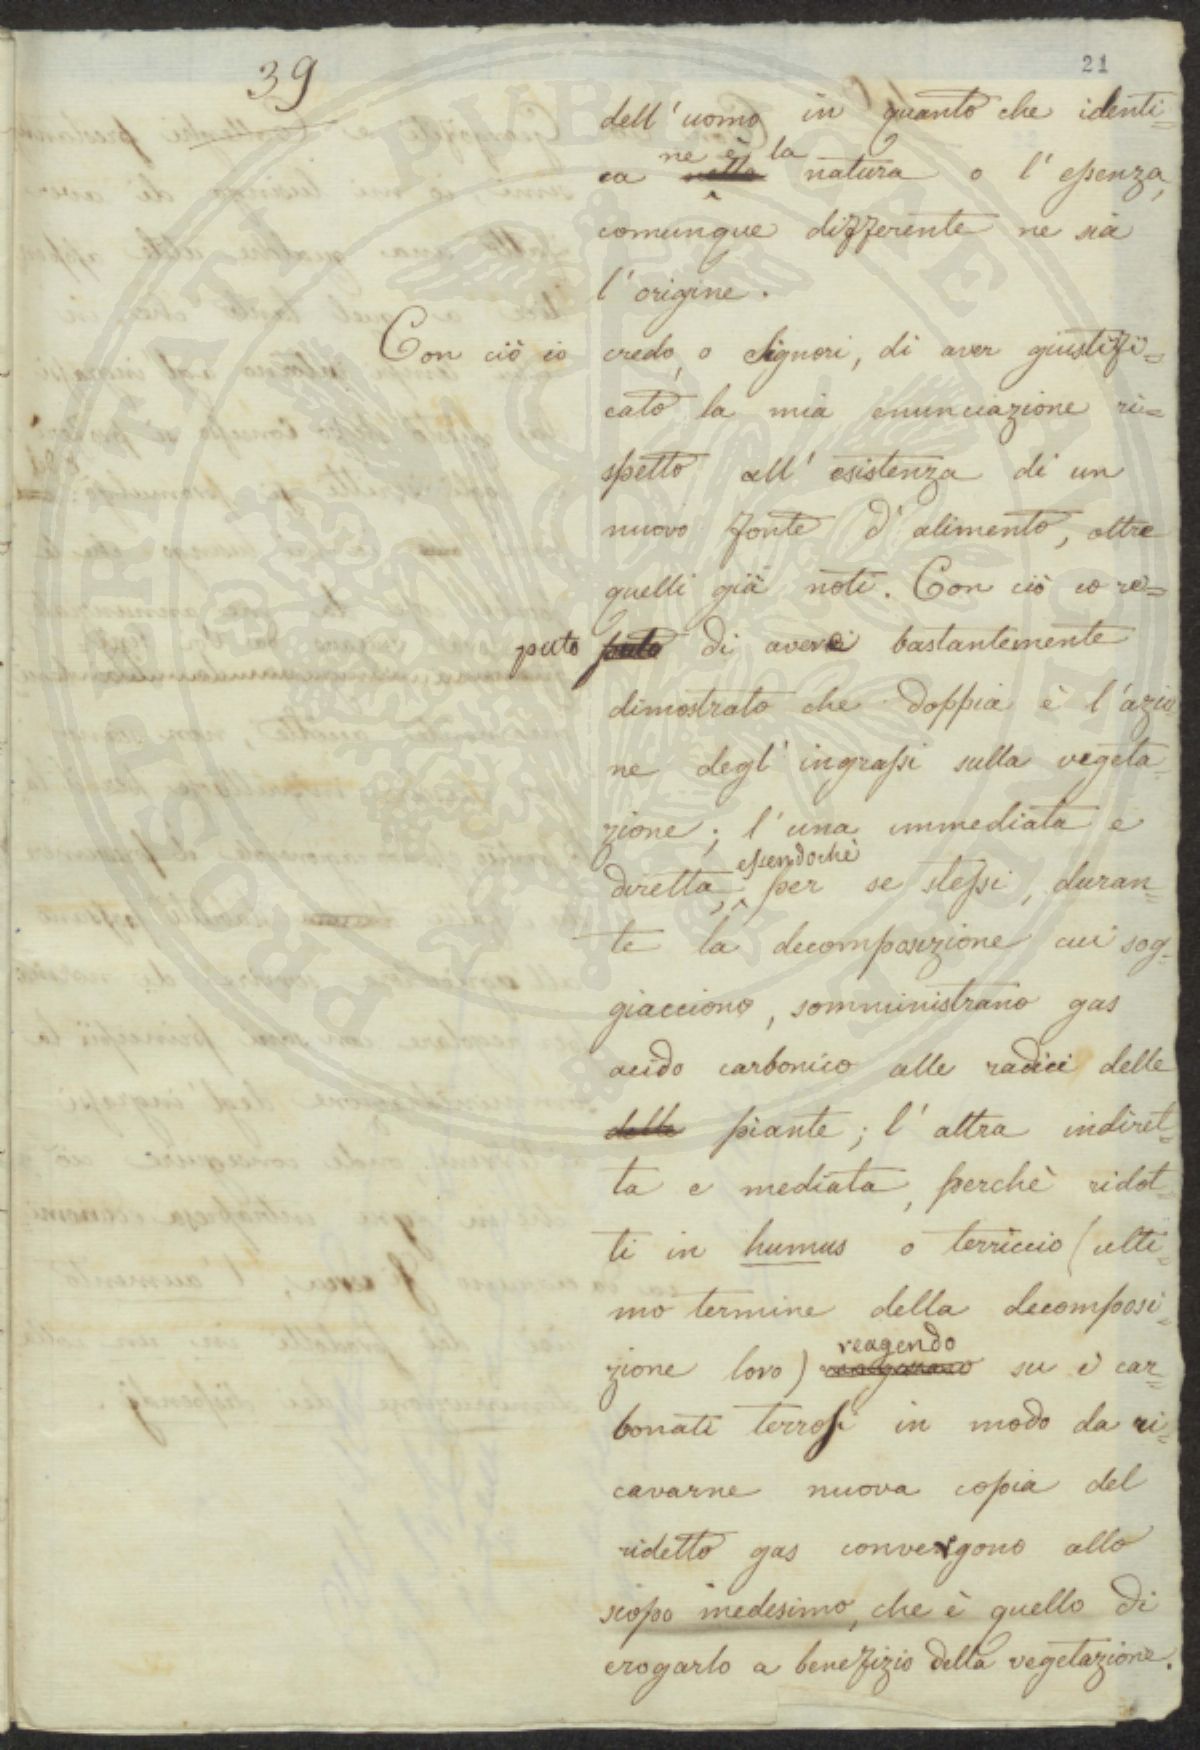 39
21
dell'uomo in quanto che identi-
ca nella ne è la natura o l'essenza,
comunque differente ne sia
l'origine.
Con ciò io credo, o Signori, di aver giustifi=
cato la mia enunciazione ri=
spetto all'esistenza di un
nuovo fonte d'alimento, oltre
quelli già noti. Con ciò io re=
puto puto di avervi bastantemente
dimostrato che doppia è l'azio
ne degl'ingrassi sulla vegeta-
zione; l'una immediata e
essendochè
diretta, per se stessi, duran-
te la decomposizione cui sog-
giacciono, somministrano gas
acido carbonico alle radici delle
delle piante; l'altra indiret-
ta e mediata, perchè ridot-
ti in humus o terriccio (ulti-
mo termine della decomposi-
reagendo
zione loro) su i car-
bonati terrosi in modo da ri-
cavarne nuova copia del
ridetto gas convergono allo
scopo medesimo, che è quello di
erogarlo a benefizio della vegetazione.